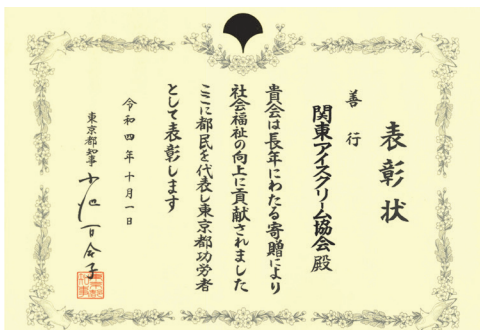 表彰状
善行
関東アイスクリーム協会殿
貴会は長年にわたる寄贈により
社会福祉の向上に貢献されました
ここに都民を代表し東京都功労者
として表彰します
令和四年十月一日
東京都知事 小池百合子